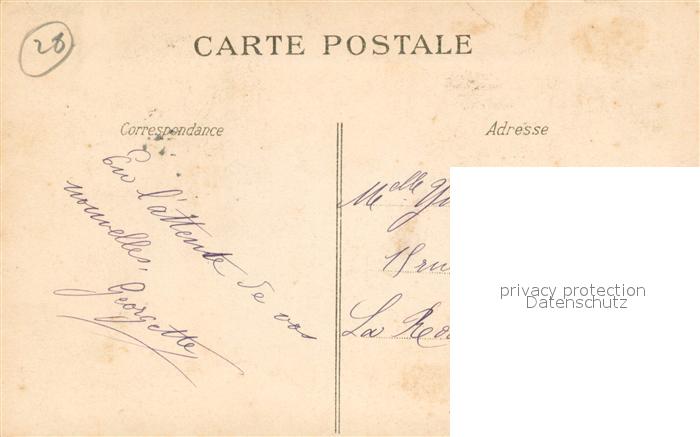 28
CARTE POSTALE
Correspondance
Adresse
En l'attente de vos
nouvelles,
Georgette
Melle
La
privacy protection
Datenschutz